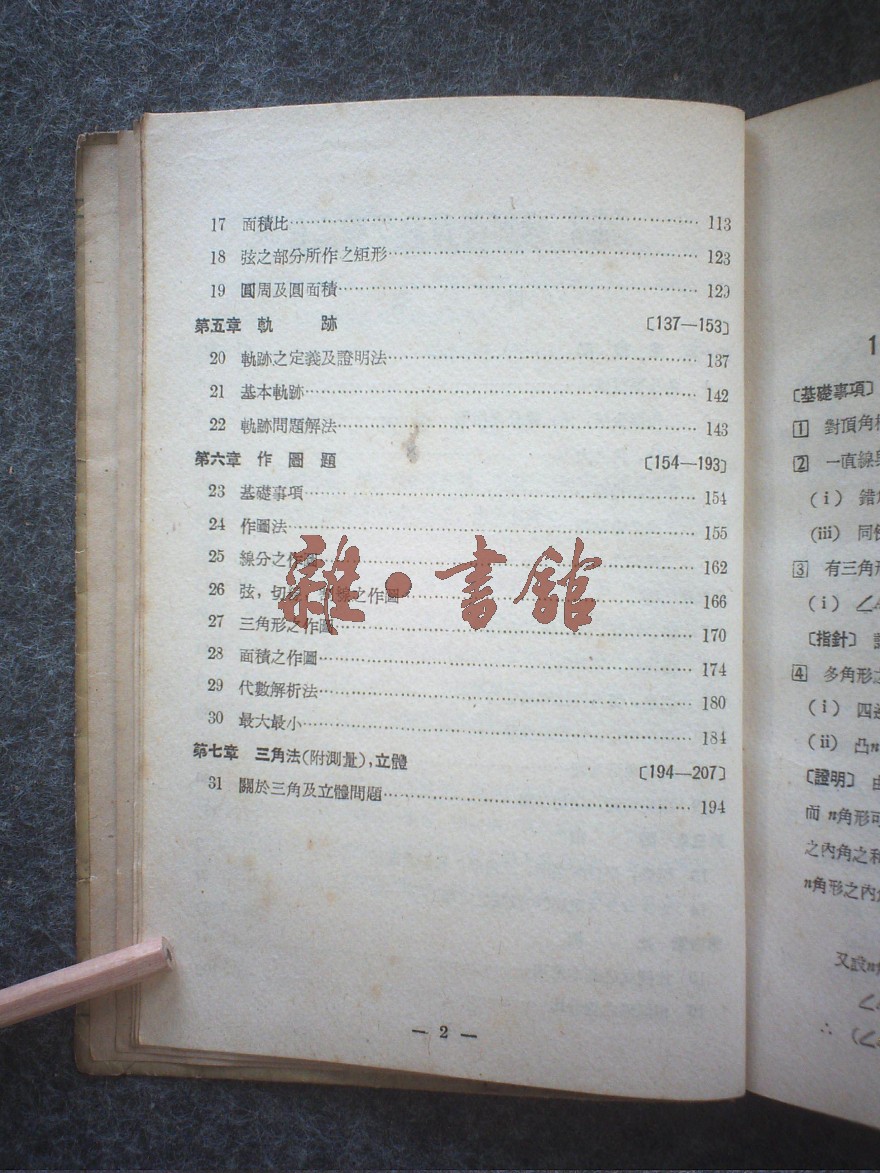 17 面積比 113
18 弦之部分所作之矩形 123
19 圓周及圓面積 129
第五章 軌 跡 〔137—153〕
20 軌跡之定義及證明法 137
21 基本軌跡 142
22 軌跡問題解法 143
第六章 作 圖 題 〔154—193〕
23 基礎事項 154
24 作圖法 155
25 線分之作圖 162
26 弦，切線，之作圖 166
27 三角形之作圖 170
28 面積之作圖 174
29 代數解析法 180
30 最大最小 184
第七章 三角法(附測量)，立體 〔194—207〕
31 關於三角及立體問題 194
— 2 —
雜·書館
1
〔基礎事項〕
1 對頂角
2 一直線
(i) 錯
(iii) 同
3 有三角形
(i) ∠
〔指針〕
4 多角形之
(i) 四
(ii) 凸n
〔證明〕 由
而 n角形可
之內角之和
n角形之內
又設n
∴